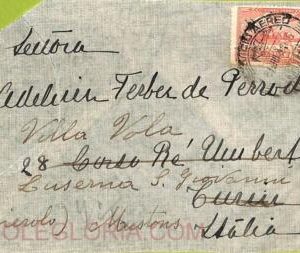 Señora
Adelina Ferber de Perrod
Villa Vola
28 Corso Ré Umbert
Luserna S. Giovanni
Turin
Italia
AEREO
OLEGLORIA.COM